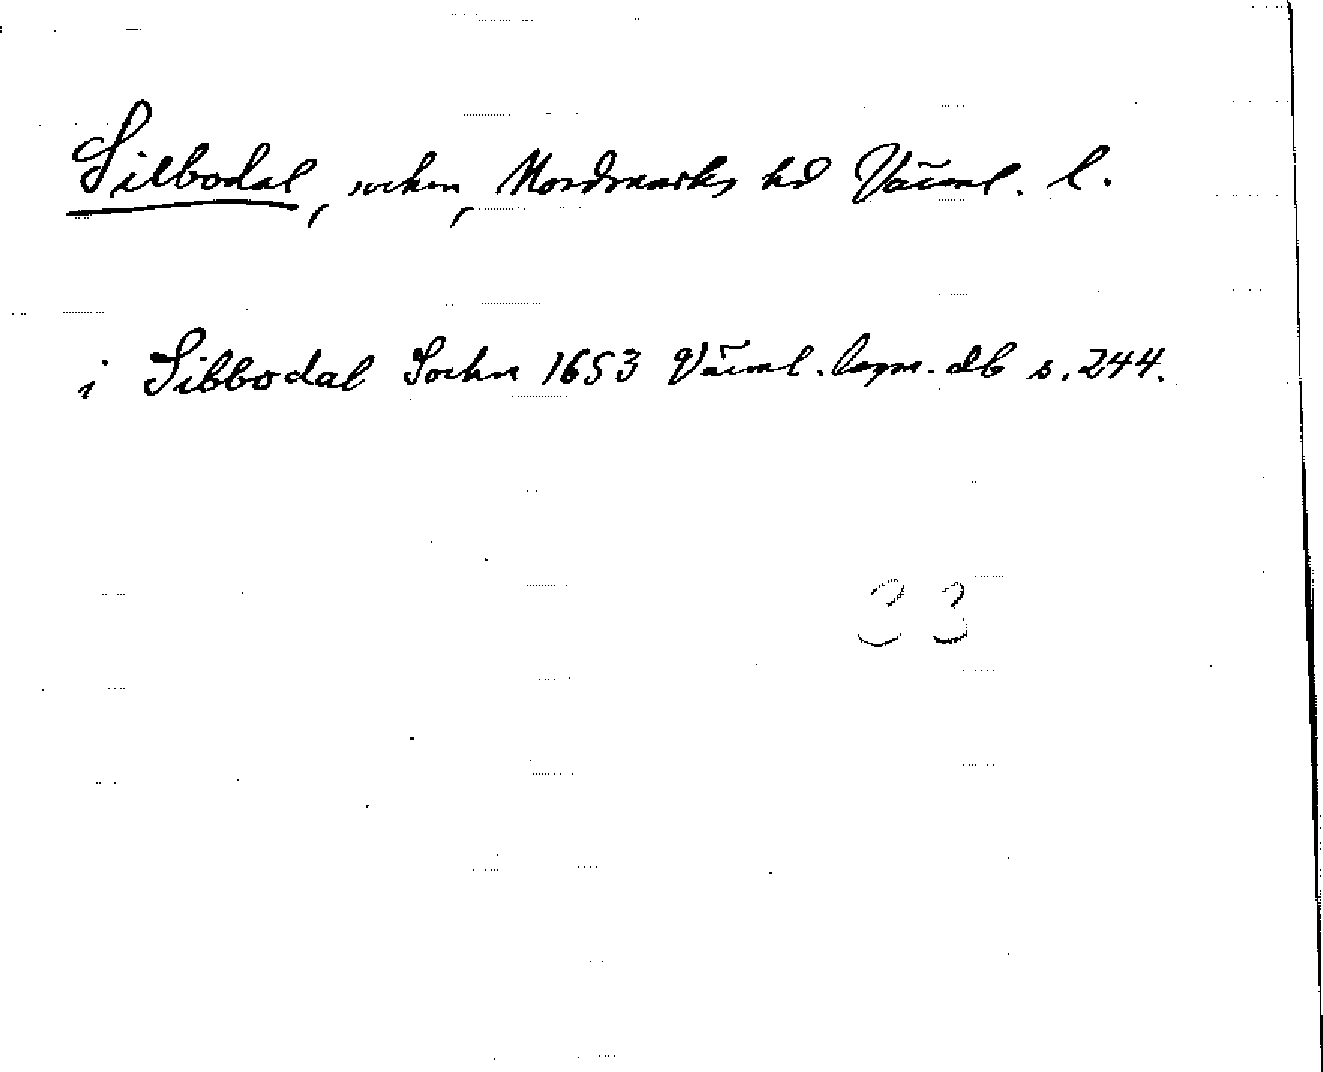 Silbodal, socken, Nordmarks hd Värml. l.
i Sibbodal Sochn 1653 Värml. lagm. db s. 244.
33